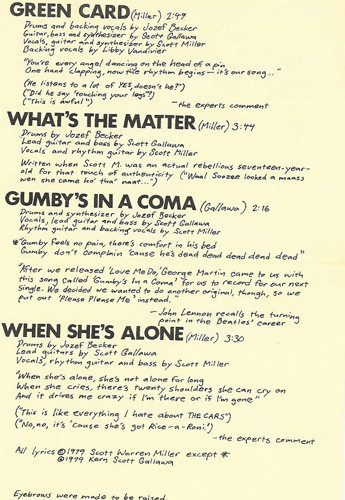 GREEN CARD (Miller) 2:47
Drums and backing vocals by Jozef Becker
Guitar, bass and synthesizer by Scott Gallawa
Vocals, guitar and synthesizer by Scott Miller
Backing vocals by Libby Vandivier
"You're every angel dancing on the head of a pin
One hand clapping, now the rhythm begins—it's our song..."
(He listens to a lot of YES, doesn't he?")
("Did he say 'touching your legs'?)
("This is awful")
—the experts comment
WHAT'S THE MATTER (Miller) 3:44
Drums by Jozef Becker
Lead guitar and bass by Scott Gallawa
Vocals and rhythm guitar by Scott Miller
Written when Scott M. was an actual rebellious seventeen-year-
old for that touch of authenticity ("Waal Soozee looked a manss
wen she came ho' tha' naat...")
GUMBY'S IN A COMA (Gallawa) 2:16
Drums and synthesizer by Jozef Becker
Vocals, lead guitar and bass by Scott Gallawa
Rhythm guitar and backing vocals by Scott Miller
*"Gumby feels no pain, there's comfort in his bed
Gumby don't complain 'cause he's dead dead dead dead dead"
"After we released 'Love Me Do,' George Martin came to us with
this song called 'Gumby's In a Coma' for us to record for our next
single. We decided we wanted to do another original, though, so we
put out 'Please Please Me' instead."
—John Lennon recalls the turning
point in the Beatles' career
WHEN SHE'S ALONE (Miller) 3:30
Drums by Jozef Becker
Lead guitars by Scott Gallawa
Vocals, rhythm guitar and bass by Scott Miller
"When she's alone, she's not alone for long
When she cries, there's twenty shoulders she can cry on
And it drives me crazy if I'm there or if I'm gone"
("This is like everything I hate about THE CARS")
("No, no, it's 'cause she's got Rice-a-Roni!")
—the experts comment
All lyrics ©1979 Scott Warren Miller except *
©1979 Kern Scott Gallawa
Eyebrows were made to be raised.